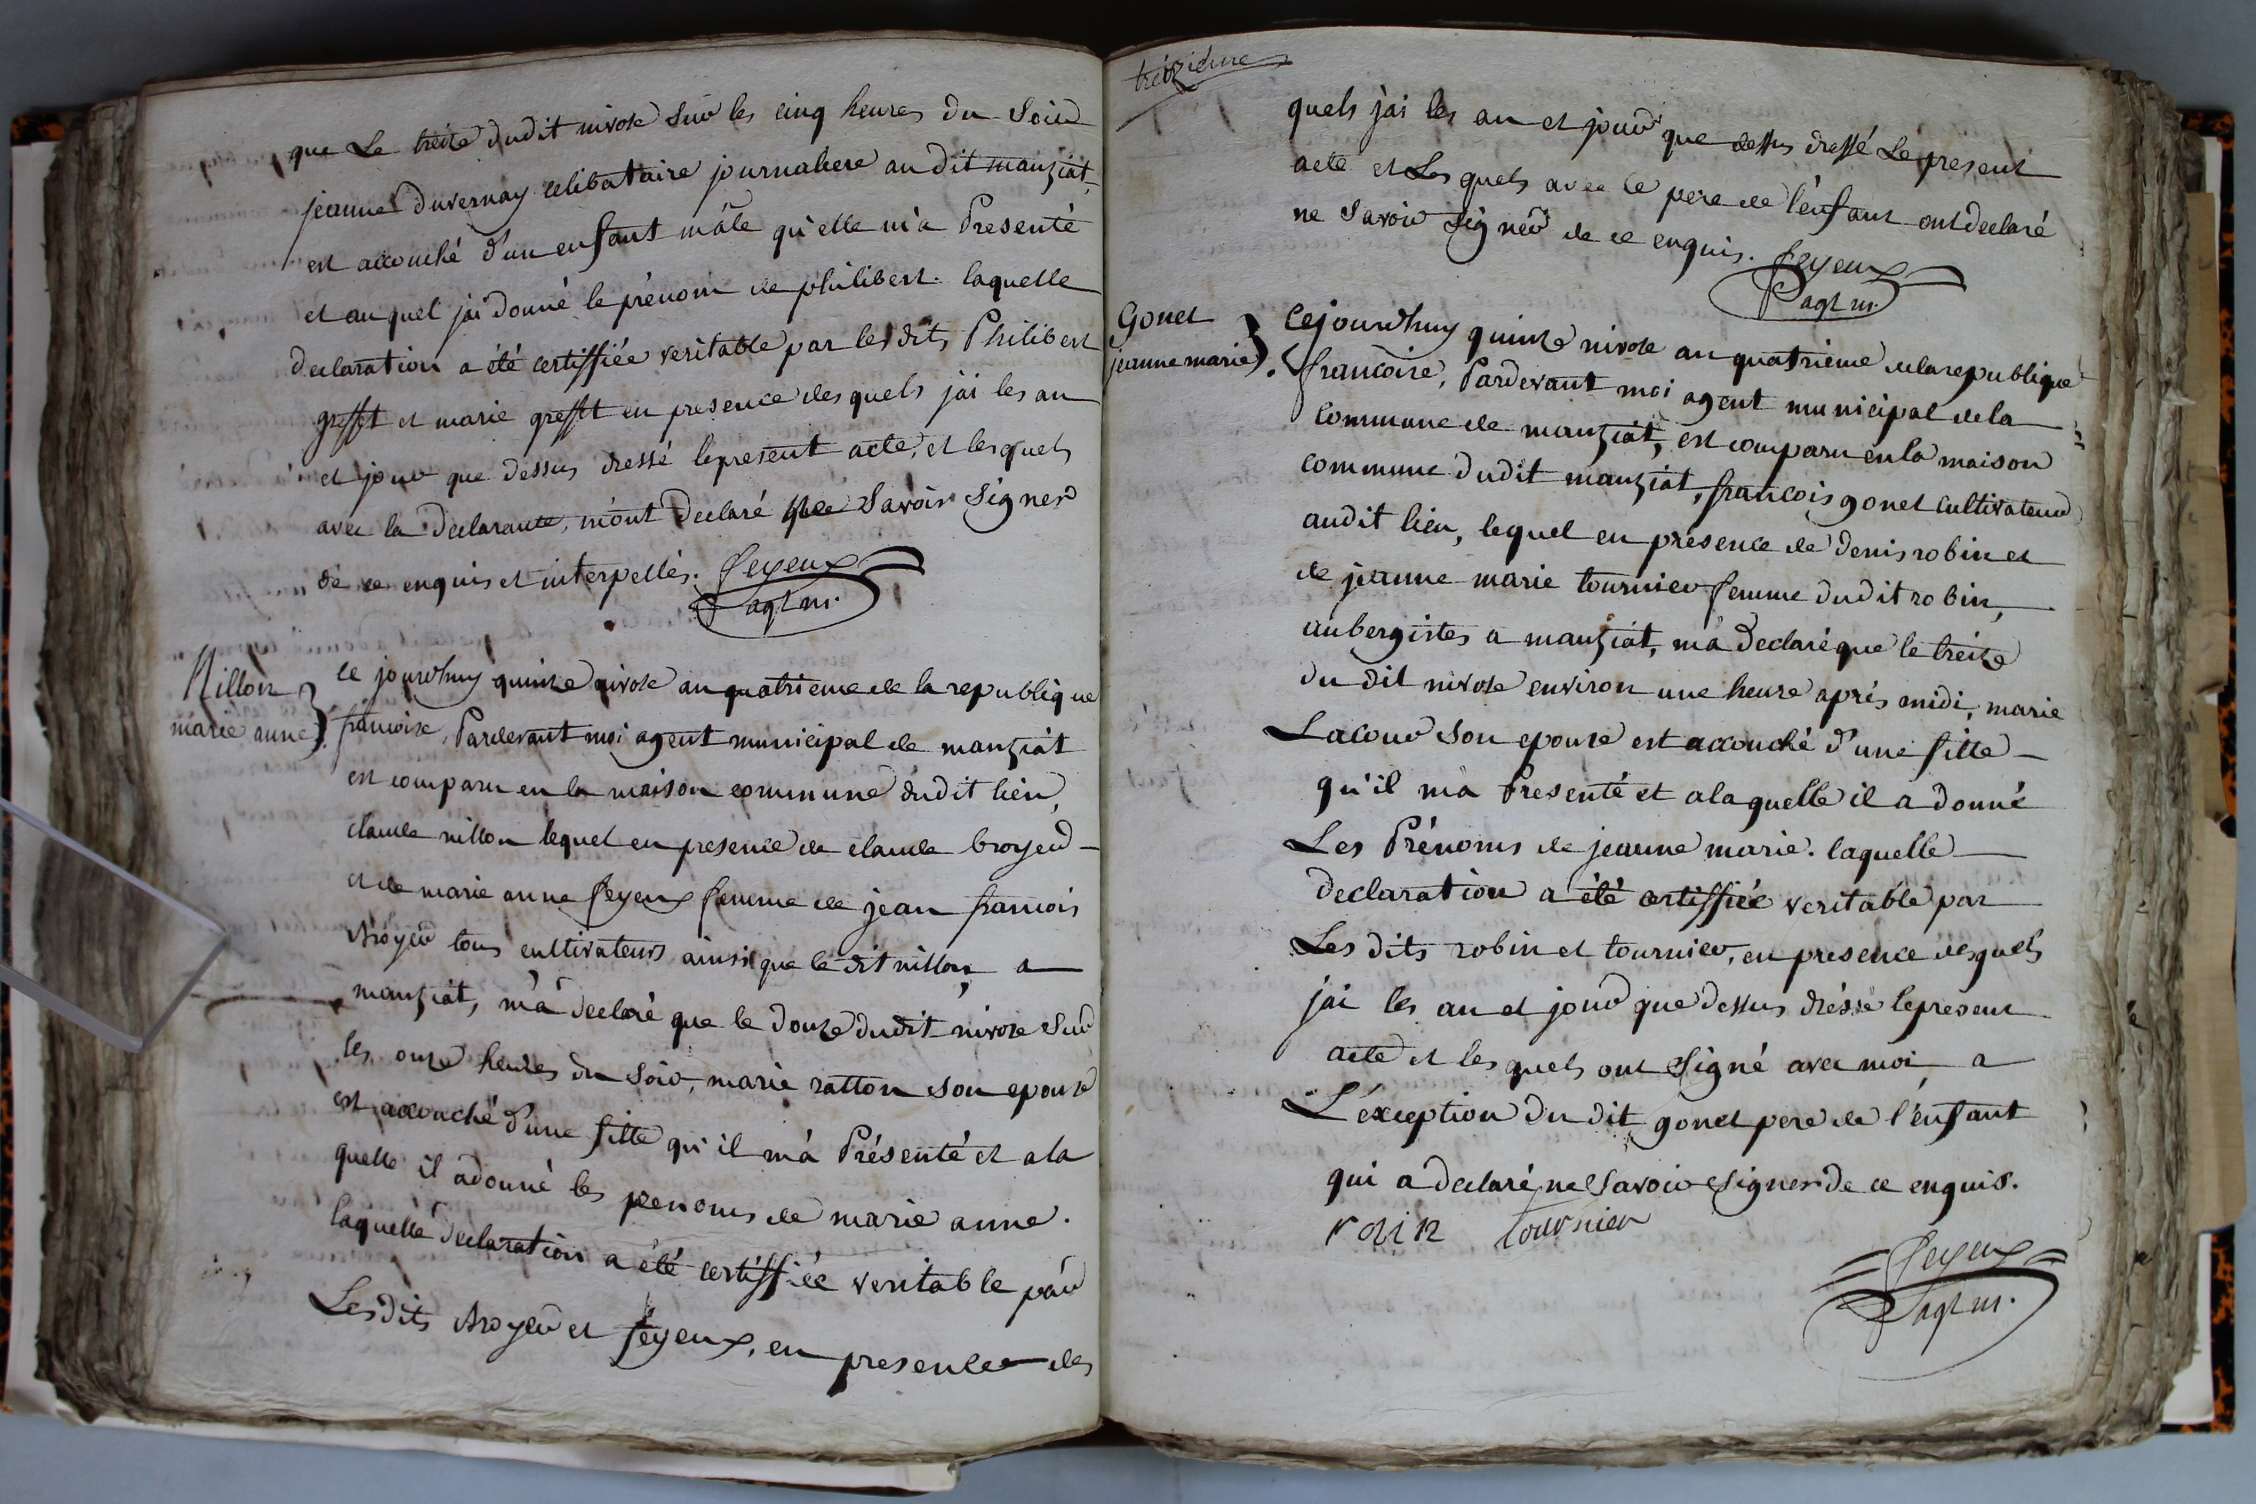 que Le treize dudit nivose sur les cinq heures du Soir
jeanne duvernay celibataire journaliere audit manziat,
est accouché d'un enfant mâle qu'elle m'a Presenté
et au quel j'ai donné le prénom de philibert. laquelle
declaration a été certiffiée veritable par lesdits Philibert
greffet et marie greffet en presence des quels j'ai les an
et jour que dessus dressé le present acte, et les quels
avec la declarante, m'ont declaré ne Savoir Signer
de ce enquis et interpellés. feyeux
agt m.
Nillon
marie anne
ce jourd'huy quinze nivose an quatrieme de la republique
francoise, Pardevant moi agent municipal de manziat
est comparu en la maison commune dudit lieu,
claude nillon lequel en presence de claude broyer
et de marie anne feyeux femme de jean francois
broyer tous cultivateurs ainsi que le dit nillon, a
manziat, m'a declaré que le douze dudit nivose sur
les onze heures du soir, marie ratton son epouse
est accouché d'une fille qu'il m'a Présenté et a la
quelle il a donné les prenoms de marie anne.
laquelle declaration a été certiffiée veritable par
Lesdits broyer et feyeux, en presence des
treizième
quels j'ai les an et jour que dessus dressé Le present
acte et Les quels avec le pere de l'enfant ont declaré
ne Savoir Signer de ce enquis. feyeux
agt m.
Gonet
jeanne marie
Cejourd'huy quinze nivose an quatrième de la republique
francoise, Pardevant moi agent municipal de la
commune de manziat, est comparu en la maison
commune dudit manziat, francois gonet cultivateur
audit lieu, lequel en présence de denis robin et
de jeanne marie tournier femme dudit robin,
aubergistes a manziat, m'a declaré que le treize
du dit nivose environ une heure après midi, marie
Lacour son epouse est accouché d'une fille
qu'il m'a Presenté et a laquelle il a donné
Les Prénoms de jeanne marie. laquelle
declaration a été certiffiée veritable par
Les dits robin et tournier, en presence desquels
j'ai les an et jour que dessus dréssé le present
acte et les quels ont Signé avec moi a
L'éxception du dit gonet pere de l'énfant
qui a declaré ne Savoir Signer de ce enquis.
robin tournier
feyeux
agt m.